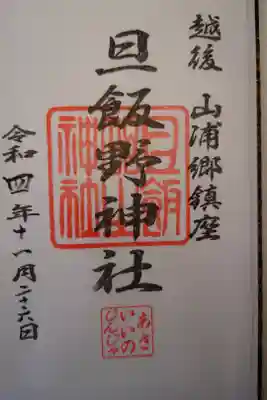 越後 山浦郷鎮座
旦飯野神社
旦飯野神社
あさいいのじんじゃ
令和四年十一月二十六日